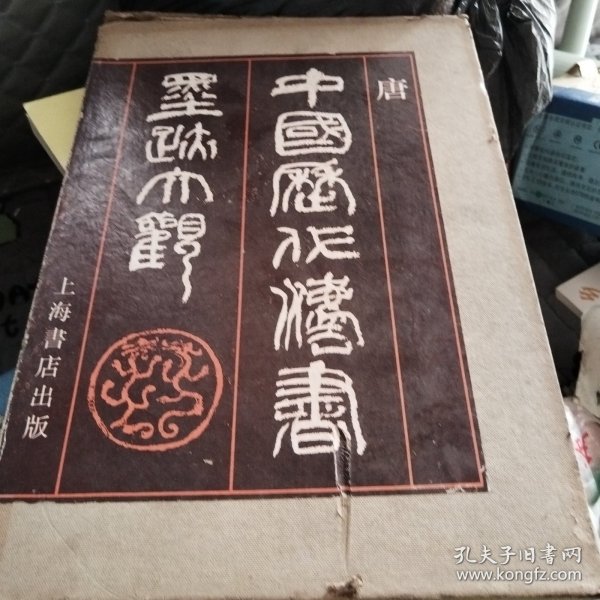 唐
中國歷代灋書
墨跡大觀
上海書店出版
孔夫子旧书网
www.kongfz.com